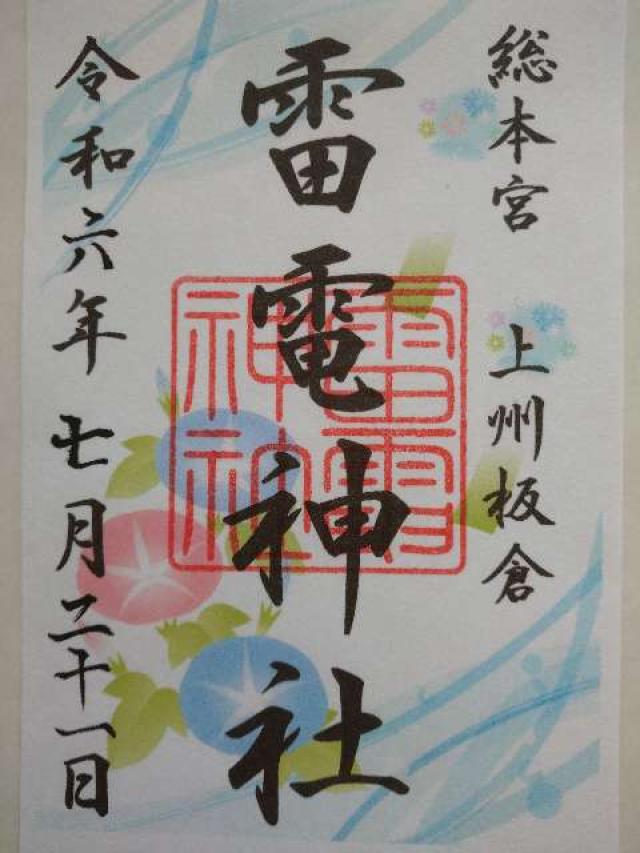 総本宮 上州板倉
雷電神社
雷電神社
令和六年七月二十一日